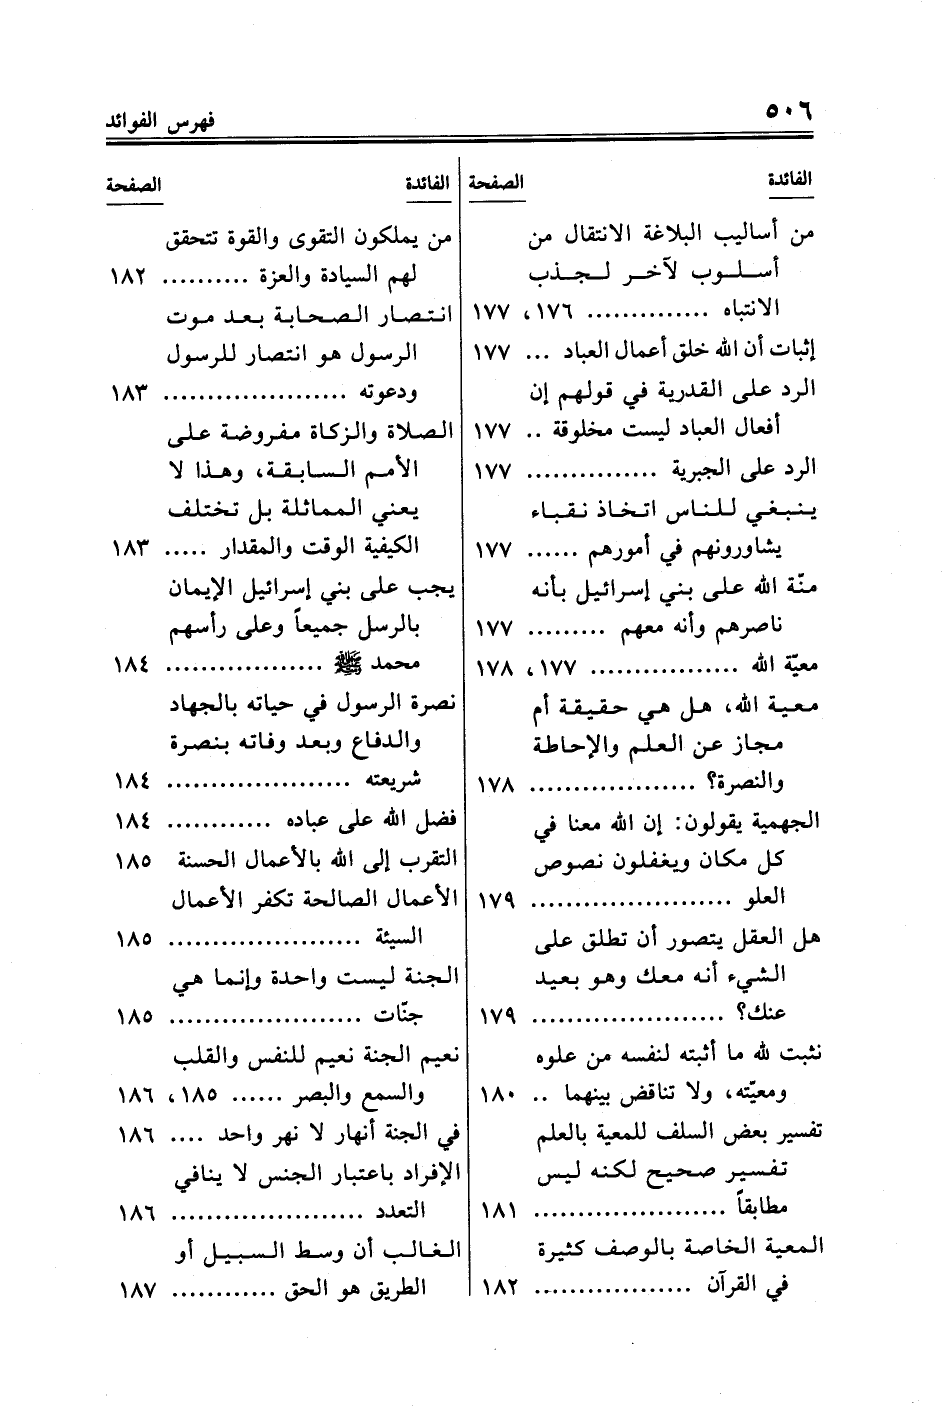 ٥٠٦
فهرس الفوائد
الفائدة الصفحة
من أساليب البلاغة الانتقال من
أسلوب لآخر لجذب
الانتباه .............. ١٧٦، ١٧٧
إثبات أن الله خلق أعمال العباد ... ١٧٧
الرد على القدرية في قولهم إن
أفعال العباد ليست مخلوقة .. ١٧٧
الرد على الجبرية ............... ١٧٧
ينبغي للناس اتخاذ نقباء
يشاورونهم في أمورهم ...... ١٧٧
منّة الله على بني إسرائيل بأنه
ناصرهم وأنه معهم ......... ١٧٧
معيّة الله ................. ١٧٧، ١٧٨
معية الله، هل هي حقيقة أم
مجاز عن العلم والإحاطة
والنصرة؟ ................... ١٧٨
الجهمية يقولون: إن الله معنا في
كل مكان ويغفلون نصوص
العلو ....................... ١٧٩
هل العقل يتصور أن تطلق على
الشيء أنه معك وهو بعيد
عنك؟ ...................... ١٧٩
نثبت لله ما أثبته لنفسه من علوه
ومعيّته، ولا تناقض بينهما .. ١٨٠
تفسير بعض السلف للمعية بالعلم
تفسير صحيح لكنه ليس
مطابقاً ...................... ١٨١
المعية الخاصة بالوصف كثيرة
في القرآن .................. ١٨٢
الفائدة الصفحة
من يملكون التقوى والقوة تتحقق
لهم السيادة والعزة .......... ١٨٢
انتصار الصحابة بعد موت
الرسول هو انتصار للرسول
ودعوته ..................... ١٨٣
الصلاة والزكاة مفروضة على
الأمم السابقة، وهذا لا
يعني المماثلة بل تختلف
الكيفية الوقت والمقدار ..... ١٨٣
يجب على بني إسرائيل الإيمان
بالرسل جميعاً وعلى رأسهم
محمد ﷺ .................. ١٨٤
نصرة الرسول في حياته بالجهاد
والدفاع وبعد وفاته بنصرة
شريعته ..................... ١٨٤
فضل الله على عباده ............ ١٨٤
التقرب إلى الله بالأعمال الحسنة ١٨٥
الأعمال الصالحة تكفر الأعمال
السيئة ...................... ١٨٥
الجنة ليست واحدة وإنما هي
جنّات ...................... ١٨٥
نعيم الجنة نعيم للنفس والقلب
والسمع والبصر ...... ١٨٥، ١٨٦
في الجنة أنهار لا نهر واحد .... ١٨٦
الإفراد باعتبار الجنس لا ينافي
التعدد ...................... ١٨٦
الغالب أن وسط السبيل أو
الطريق هو الحق ............ ١٨٧